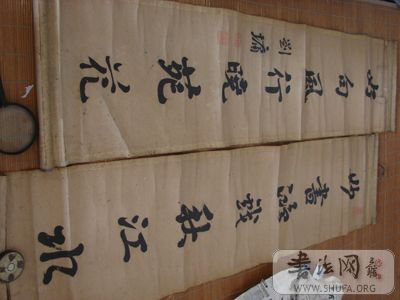 妙書鴻戲秋江水
好句風行曉苑花
劉墉
書法网
WWW.SHUFA.ORG